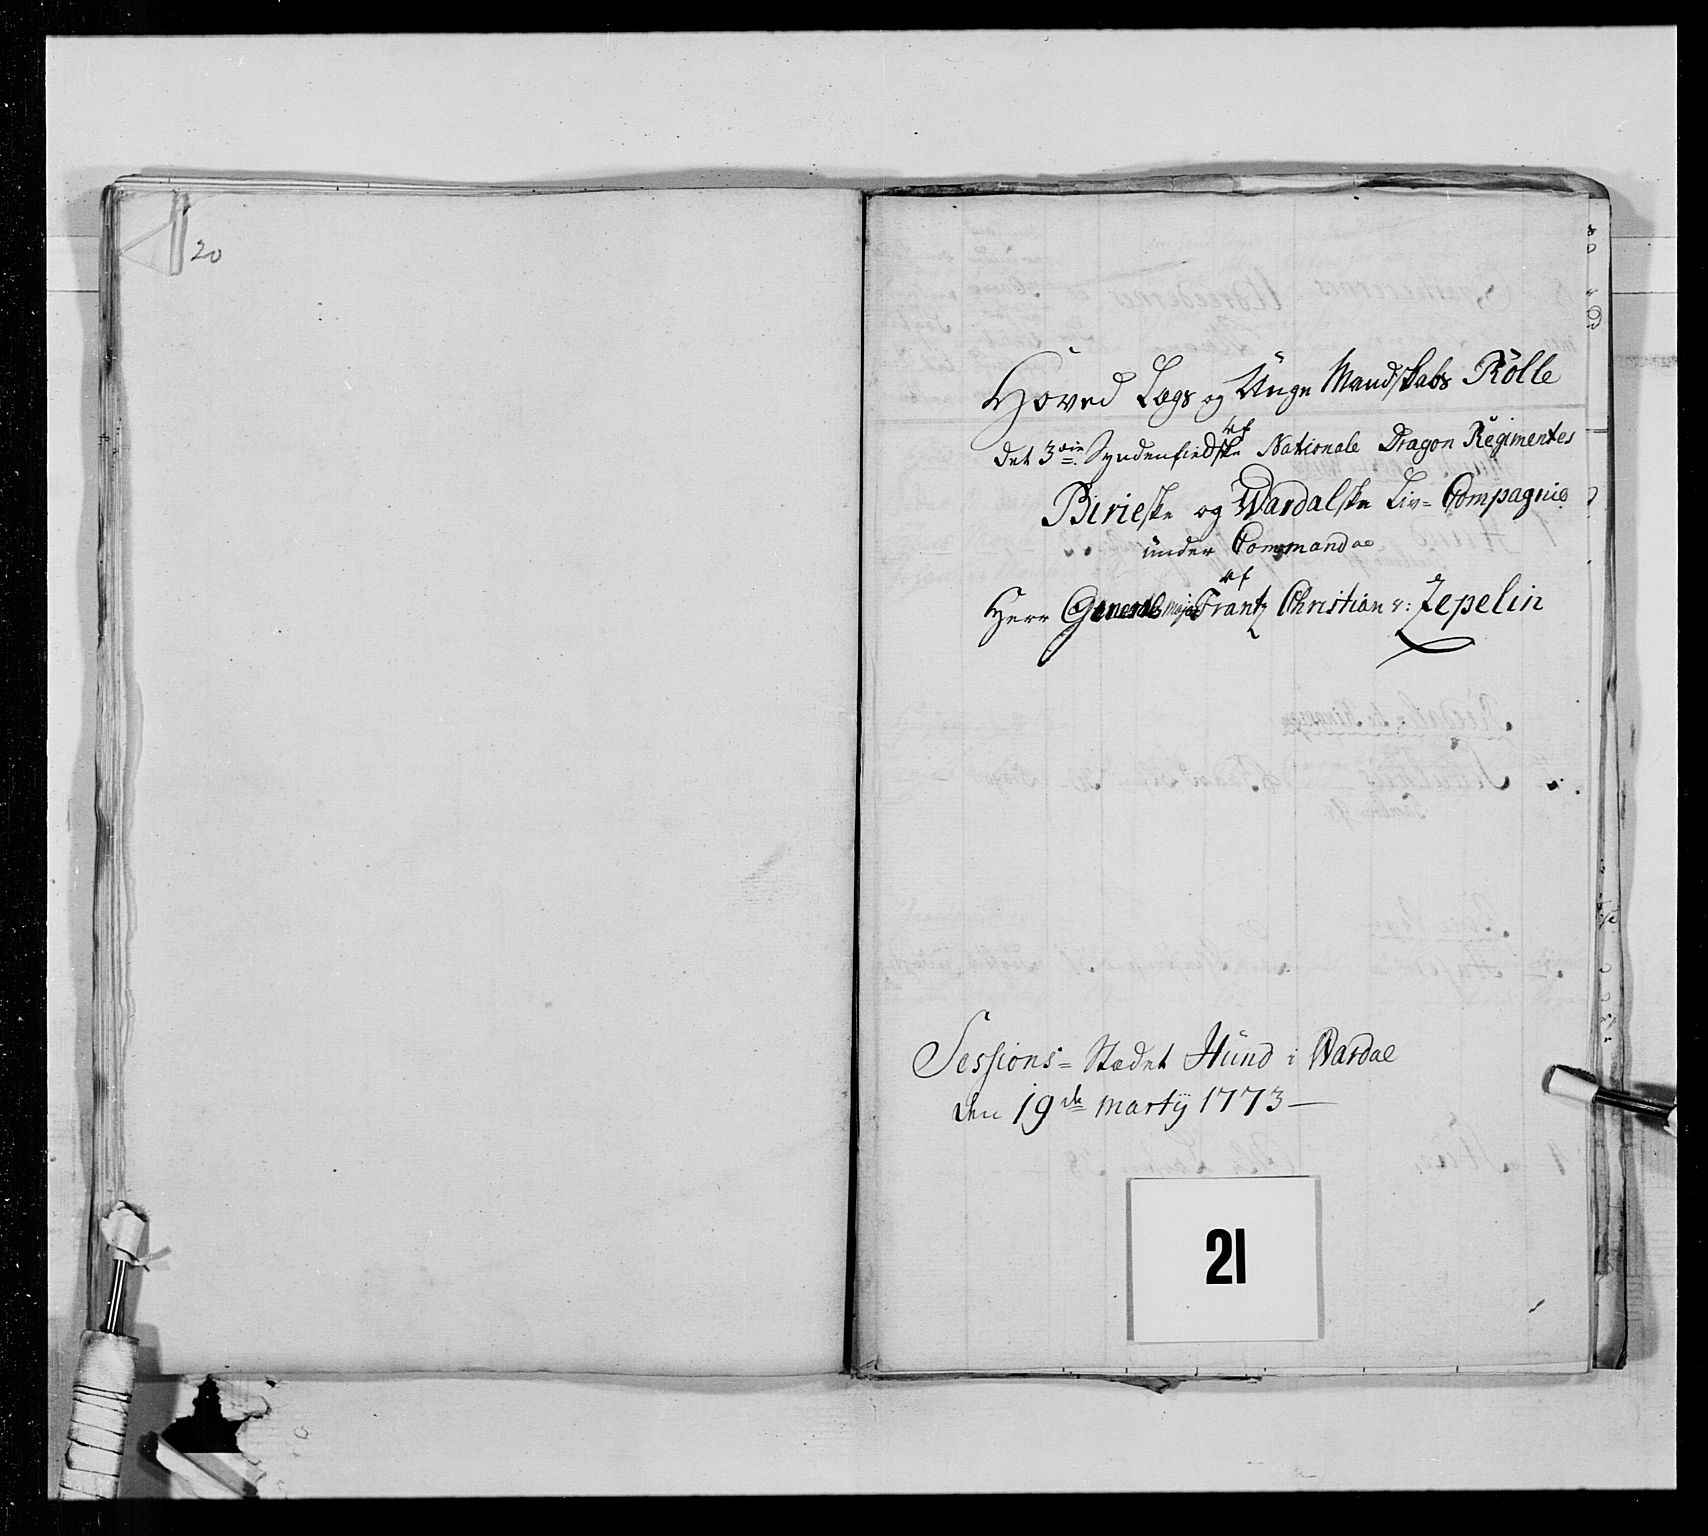 20
Hoved Lægs og Unge Mandskabs Rolle
af
det 3die Syndenfieldske Nationale Dragon Regimentes
Birieske og Wardalske Liv= Compagnie
under Commandoe
af
Herr General major Frantz Christian v: Zepelin
Sessions= Stædet Hund i Wardal
den 19de Martij 1773
21